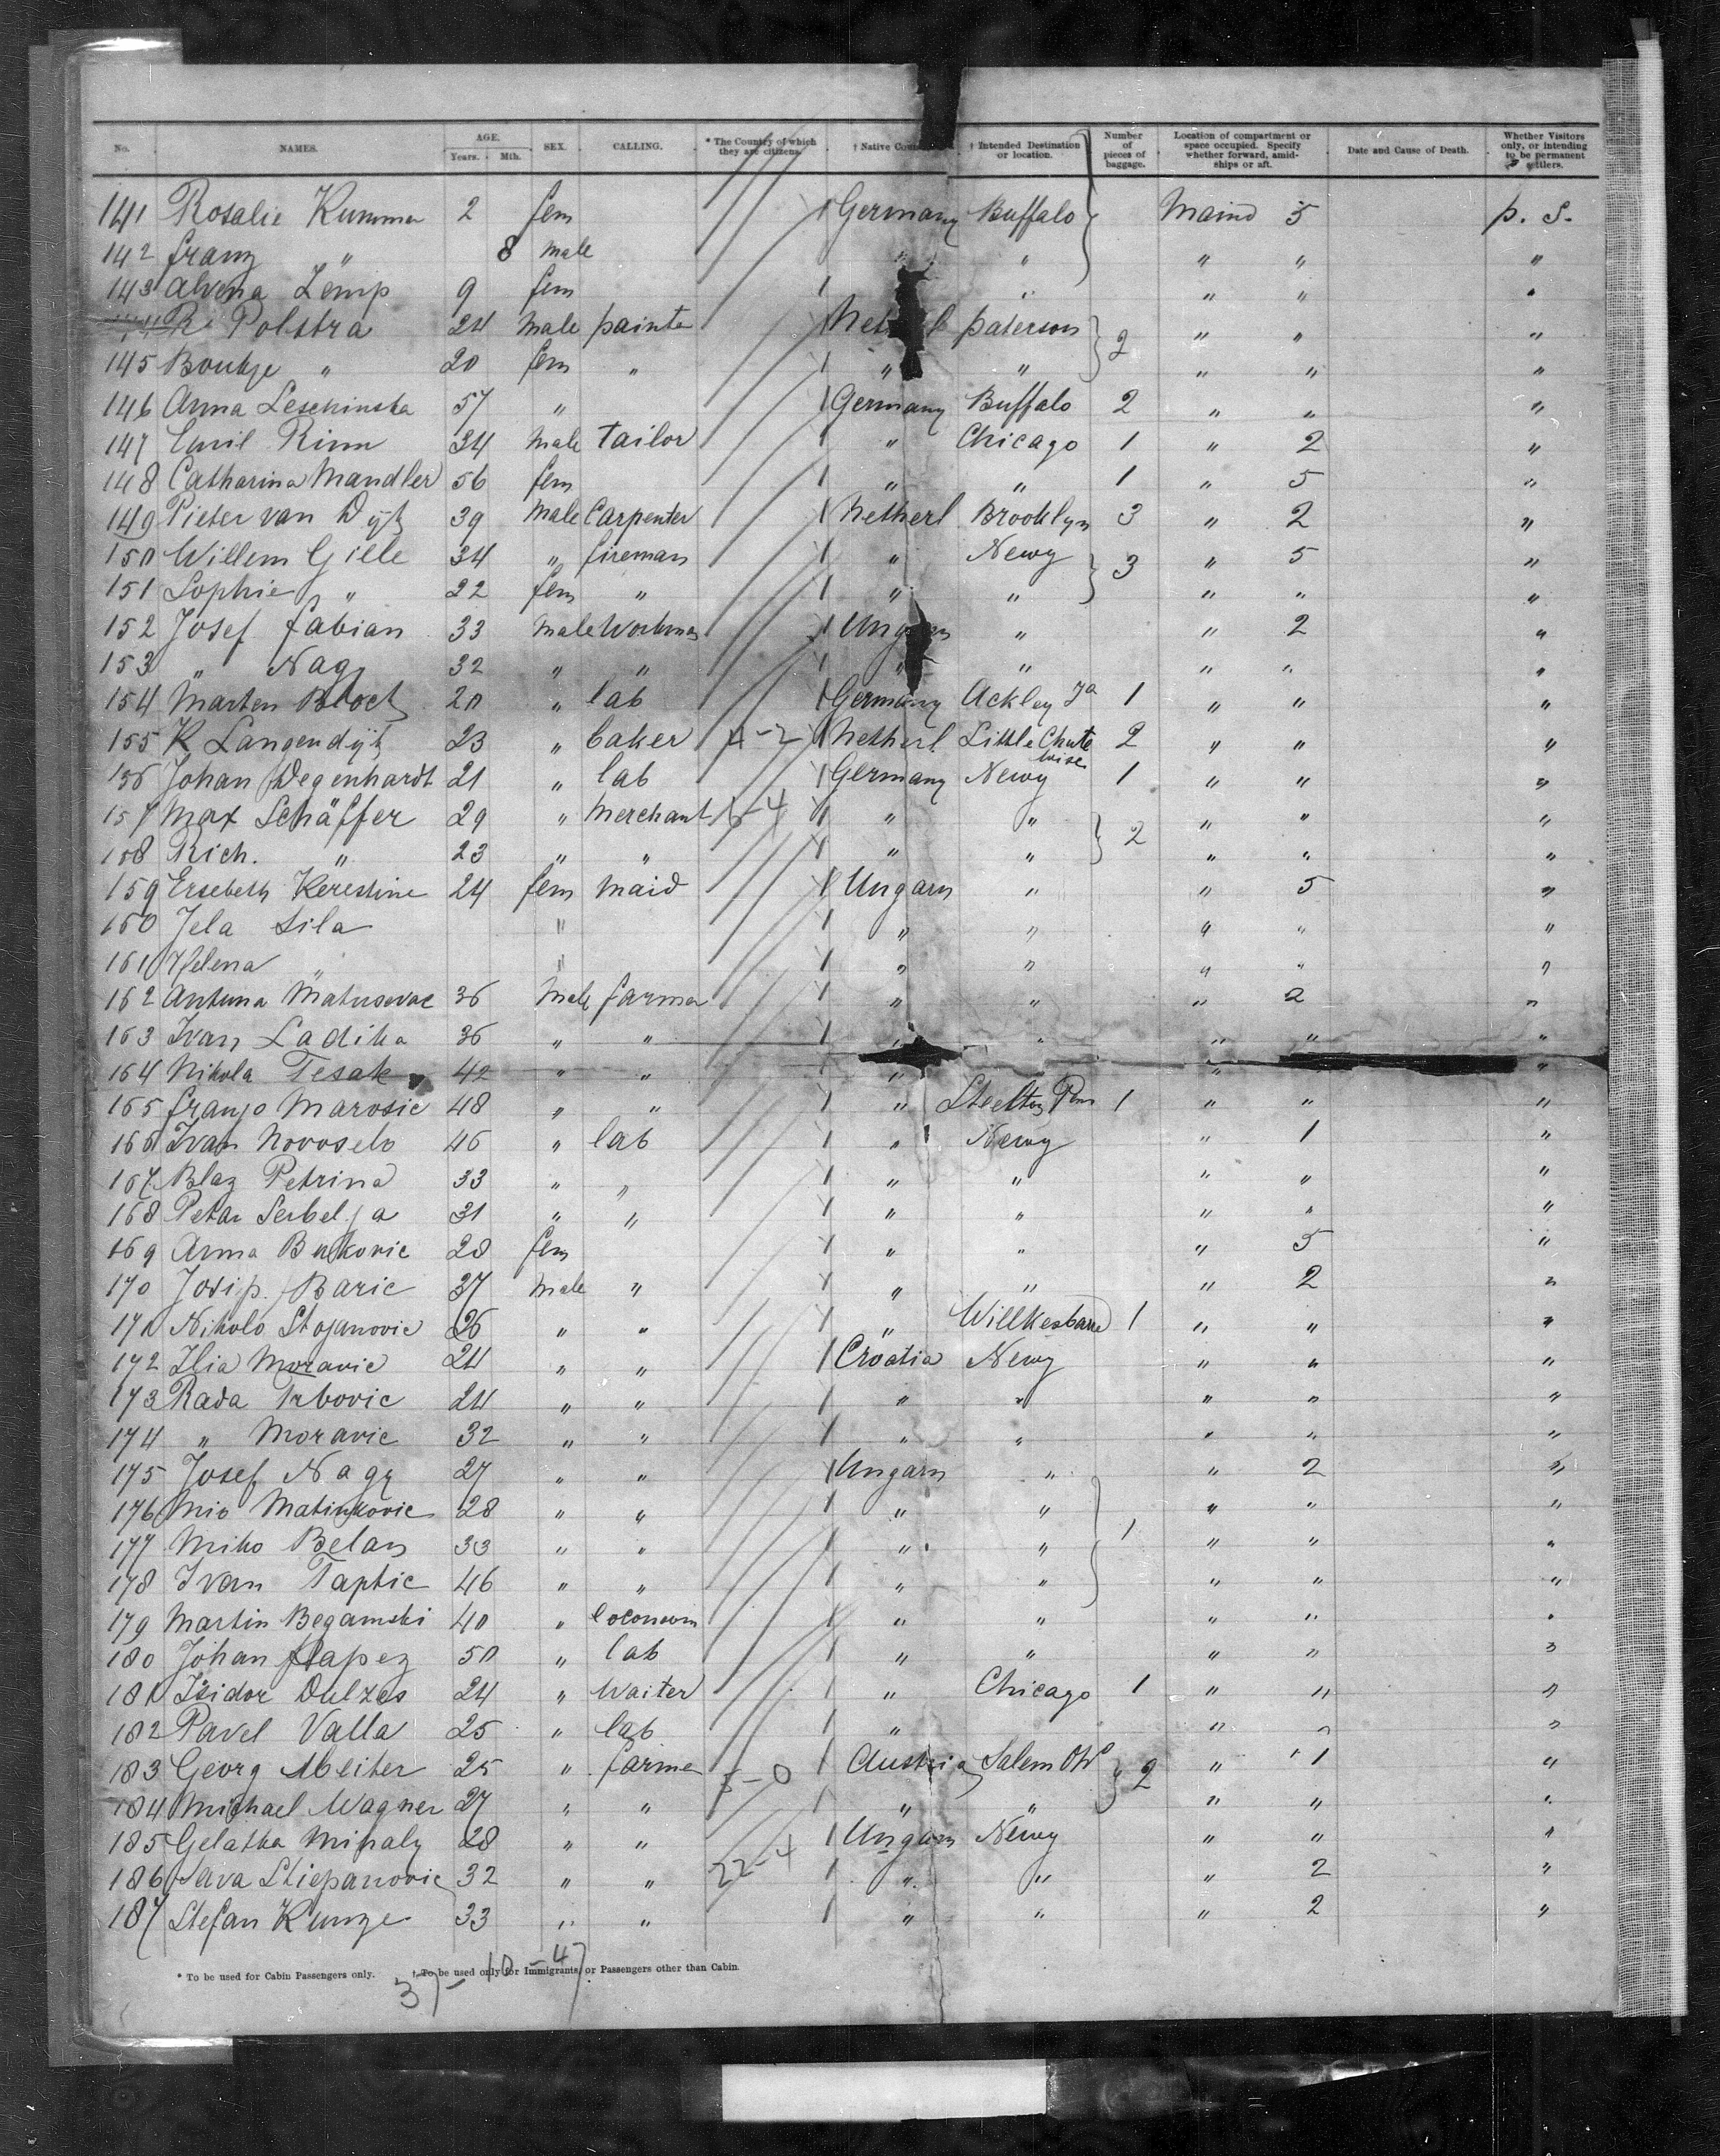 No. NAMES. AGE. Years. Mth. SEX. CALLING. * The Country of which they are citizens. † Native † Intended Destination or location. Number of pieces of baggage. Location of compartment or space occupied. Specify whether forward, amidships or aft. Date and Cause of Death. Whether Visitors only, or intending to be permanent settlers.
141 Rosalie Kummer 2 fem Germany Buffalo Maind 5 p. S.
142 franz " 8 male " " " " "
143 Alvena Zemp 9 fem " " " "
R Polstra 24 male painte paterson 2 " " "
145 Boukje " 20 fem " " " " " "
146 Anna Leschinska 57 " Germany Buffalo 2 " " "
147 Emil Rinn 34 male tailor " Chicago 1 " 2 "
148 Catharina Mandler 56 fem " " 1 " 5 "
149 Pieter van Dijk 39 male Carpenter Netherl Brooklyn 3 " 2 "
150 Willem Gille 34 " fireman " Newy 3 " 5 "
151 Sophie " 22 fem " " " " " "
152 Josef fabian 33 male Workman Ungarn " " 2 "
153 " Nagy 32 " " " " " " "
154 Marten Block 20 " lab Germany Ackley Ja 1 " " "
155 K Langendijk 23 " baker 4-2 Netherl Little Chute Wise 2 " " "
156 Johan Degenhardt 21 " lab Germany Newy 1 " " "
157 Max Schäffer 29 " Merchant 5-4 " " 2 " " "
158 Rich. " 23 " " " " " " "
159 Ersebeth Kerestine 24 fem maid Ungarn " " 5 "
160 Jela Sila " " " " " "
161 Helena " " " " " " "
162 Antuna Matusevac 36 Male farmer " " " 2 "
163 Ivan Ladika 36 " " " " " " "
164 Nikola Tesak 42 " " " " "
165 franjo Marosic 48 " " " Steelton Pen 1 " " "
166 Ivan Novoselo 46 " lab " Newy " 1 "
167 Blaz Petrina 33 " " " " " " "
168 Petar Serbelja 31 " " " " " " "
169 Anna Bukovic 28 fem " " " 5 "
170 Josip Baric 37 male " " " " 2 "
171 Nikolo Stojanovic 26 " " " Willkesbarre 1 " " "
172 Ilia Moravic 24 " " Croatia Newy " " "
173 Rada Trbovic 24 " " " " " " "
174 " Moravic 32 " " " " " " "
175 Josef Nagy 27 " " Ungarn " " 2 "
176 Mio Matinkovic 28 " " " " 1 " " "
177 Miko Belan 33 " " " " " " "
178 Ivan Taptic 46 " " " " " " "
179 Martin Begamski 40 " " " " " "
180 Johan 50 " lab " " " " "
181 Isidor Dulzes 24 " Waiter " Chicago 1 " " "
182 Pavel Valla 25 " lab " " " "
183 Georg Meiter 25 " farmer 5-0 Austria Salem Oh 2 " 1 "
184 Michael Wagner 27 " " " " " " "
185 Gelatka Mihaly 28 " " Ungarn Newy " " "
186 Sava Stiepanovic 32 " " 22-4 " " " 2 "
187 Stefan Kunze 33 " " " " " 2 "
* To be used for Cabin Passengers only. † To be used only for Immigrants, or Passengers other than Cabin.
37-10-47